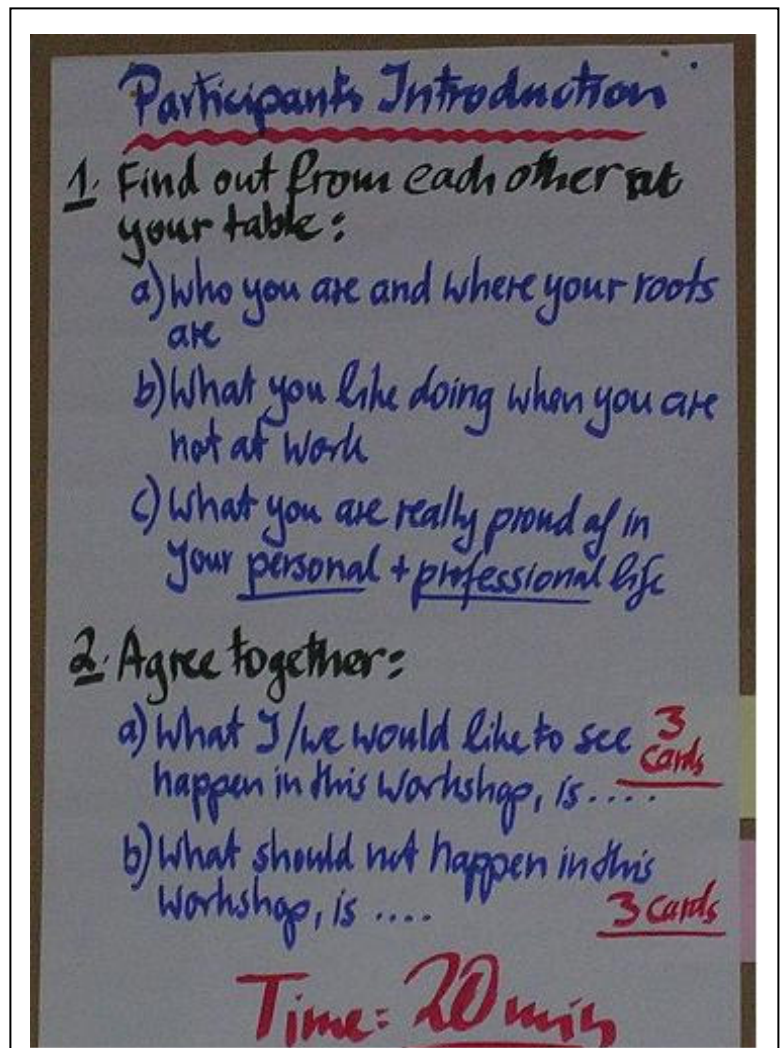 Participants Introduction
1. Find out from each other at
your table:
a) Who you are and where your roots
are
b) What you like doing when you are
not at work
c) What you are really proud of in
your personal + professional life
2. Agree together:
a) What I/we would like to see 3
cards
happen in this workshop, is ....
b) What should not happen in this
workshop, is .... 3 cards
Time: 20 min